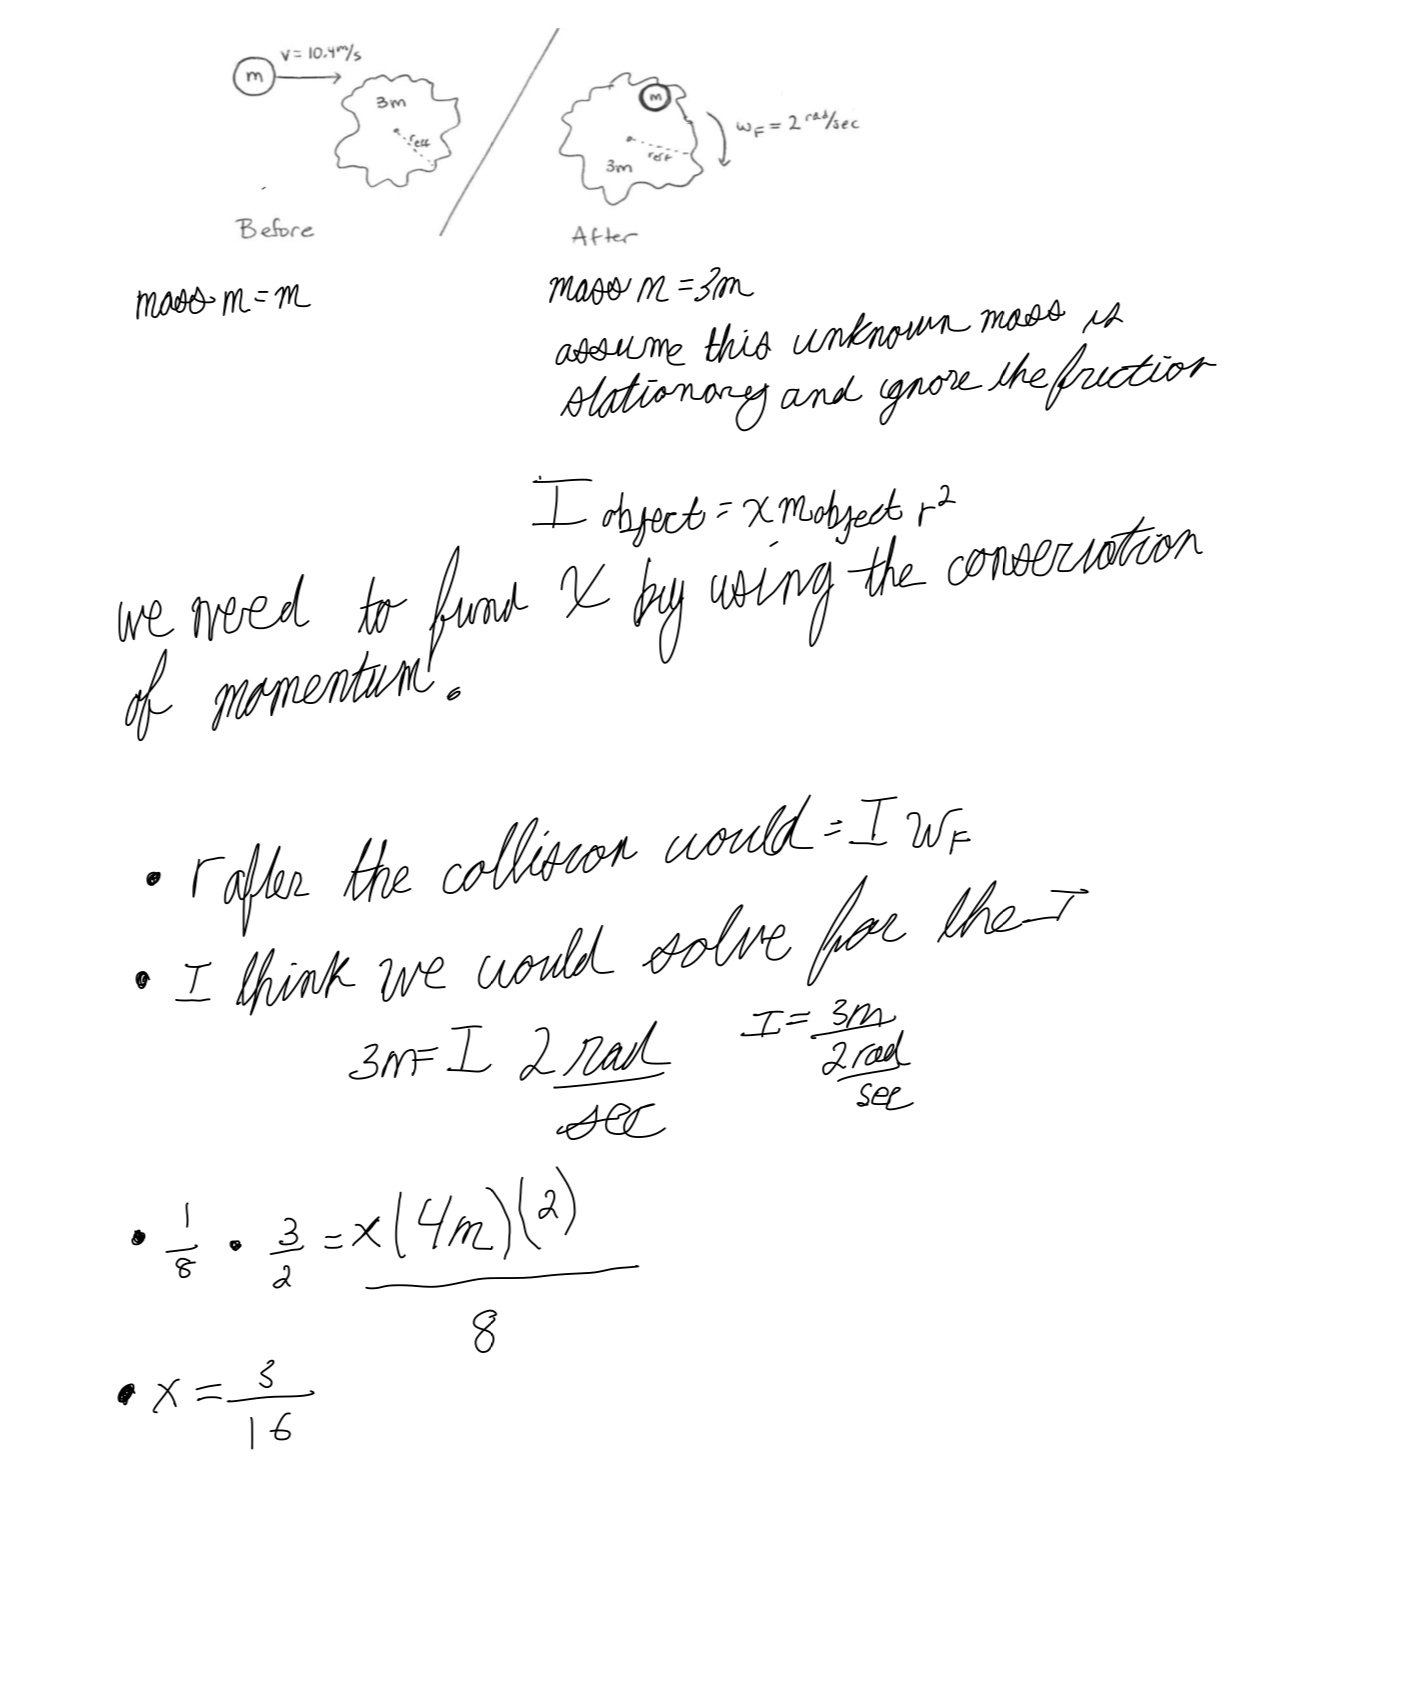 V = 10.4 m/s
m
3m
reff
Before
m
ωF = 2 rad/sec
reff
3m
After
mass m = m
mass m = 3m
assume this unknown mass is
stationary and ignore the friction
I object = x m object r²
we need to fund x by using the conservation
of momentum.
• r after the collision would = I WF
• I think we would solve for the I
3m = I 2 rad/sec
I = 3m / 2 rad/sec
• 1/8 • 3/2 = x(4m)(2) / 8
• x = 3/16